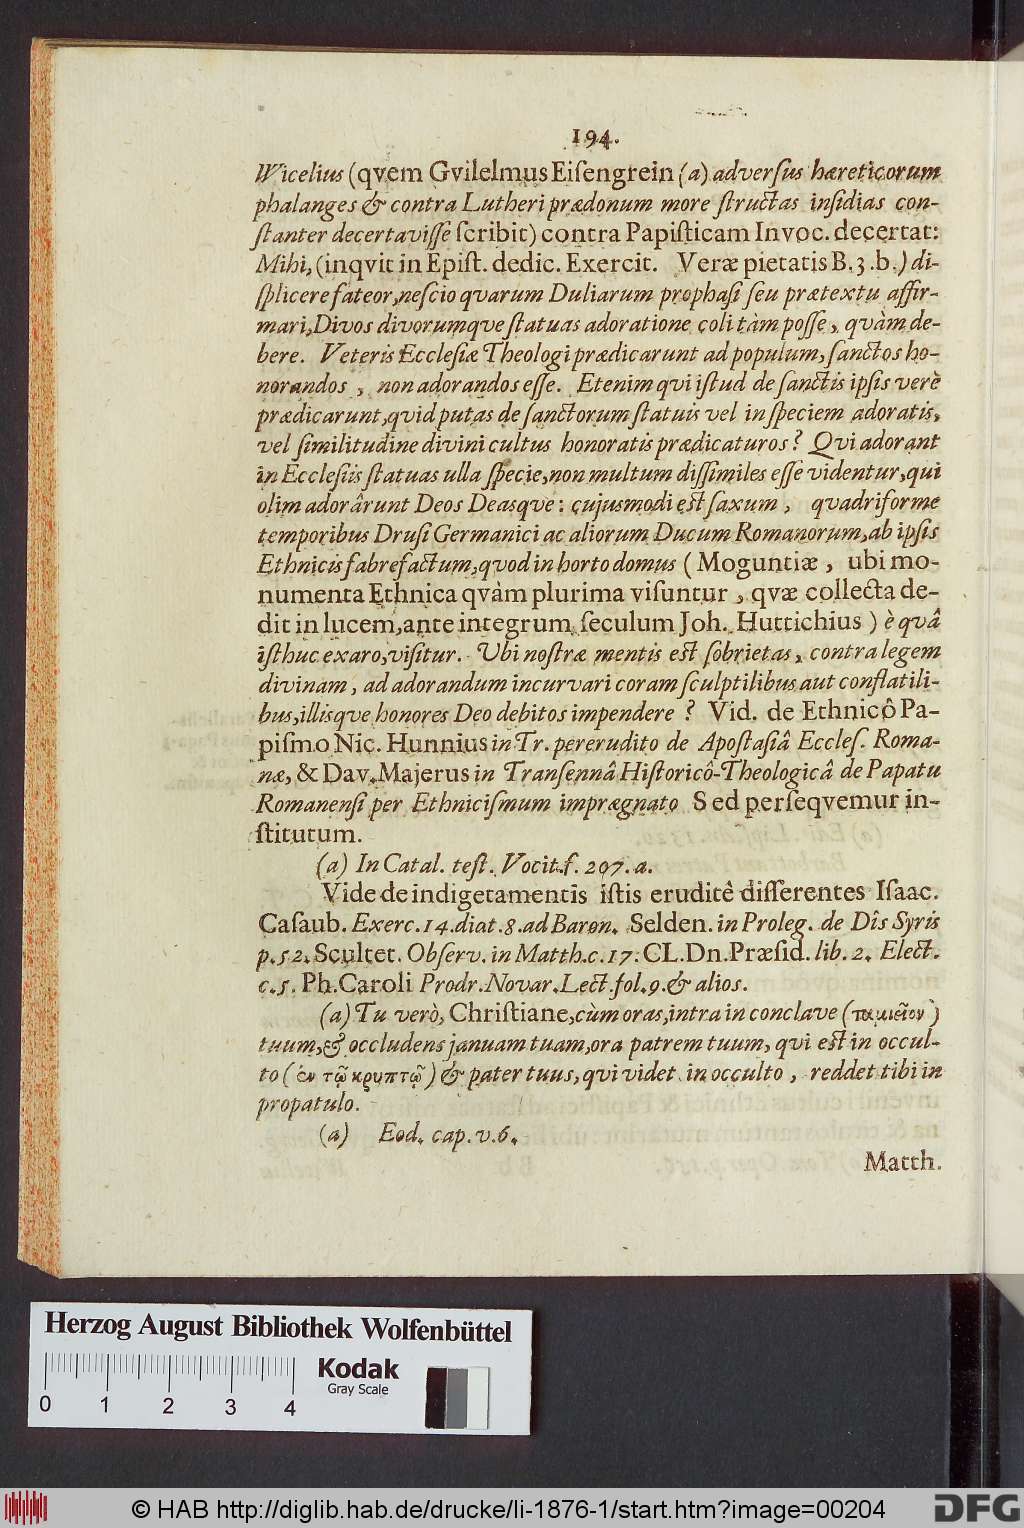 194.
Wicelius (qvem Gvilelmus Eiſengrein (a) adverſus hæreticorum
phalanges & contra Lutheri prædonum more ſtructas inſidias con-
ſtanter decertaviſſe ſcribit) contra Papiſticam Invoc. decertat:
Mihi, (inqvit in Epiſt. dedic. Exercit. Veræ pietatis B. 3. b.) di-
ſplicere fateor, neſcio qvarum Duliarum prophaſi ſeu prætextu affir-
mari, Divos divorumqve ſtatuas adoratione coli tàm poſſe, qvàm de-
bere. Veteris Eccleſiæ Theologi prædicarunt ad populum, ſanctos ho-
norandos, non adorandos eſſe. Etenim qui iſtud de ſanctis ipſis verè
prædicarunt, qvid putas de ſanctorum ſtatuis vel in ſpeciem adoratis,
vel ſimilitudine divini cultus honoratis prædicaturos? Qvi adorant
in Eccleſiis ſtatuas ulla ſpecie, non multum diſſimiles eſſe videntur, qui
olim adorârunt Deos Deasqve: cujusmodi eſt ſaxum, qvadriforme
temporibus Druſi Germanici ac aliorum Ducum Romanorum, ab ipſis
Ethnicis fabrefactum, qvod in horto domus (Moguntiæ, ubi mo-
numenta Ethnica qvàm plurima viſuntur, qvæ collecta de-
dit in lucem, ante integrum ſeculum Joh. Huttichius) è qvâ
iſthuc exaro, viſitur. Ubi noſtræ mentis eſt ſobrietas, contra legem
divinam, ad adorandum incurvari coram ſculptilibus aut conflatili-
bus, illisqve honores Deo debitos impendere? Vid. de Ethnicô Pa-
piſmo Nic. Hunnius in Tr. pererudito de Apoſtaſiâ Eccleſ. Roma-
næ, & Dav. Majerus in Tranſennâ Hiſtoricô-Theologicâ de Papatu
Romanenſi per Ethniciſmum imprægnato Sed perſeqvemur in-
ſtitutum.
(a) In Catal. teſt. Vocit. f. 207. a.
Vide de indigetamentis iſtis eruditê diſſerentes Iſaac.
Caſaub. Exerc. 14. diat. 8. ad Baron. Selden. in Proleg. de Dîs Syris
p. 52. Scultet. Obſerv. in Matth. c. 17. CL. Dn. Præſid. lib. 2. Elect.
c. 5. Ph. Caroli Prodr. Novar. Lect. fol. 9. & alios.
(a) Tu verò, Chriſtiane, cùm oras, intra in conclave (ταμιεῖον)
tuum, & occludens januam tuam, ora patrem tuum, qvi eſt in occul-
to (ἐν τῷ κρυπτῷ) & pater tuus, qvi videt in occulto, reddet tibi in
propatulo.
(a) Eod. cap. v. 6.
Matth.
Herzog August Bibliothek Wolfenbüttel
Kodak
Gray Scale
0 1 2 3 4
© HAB http://diglib.hab.de/drucke/li-1876-1/start.htm?image=00204
DFG